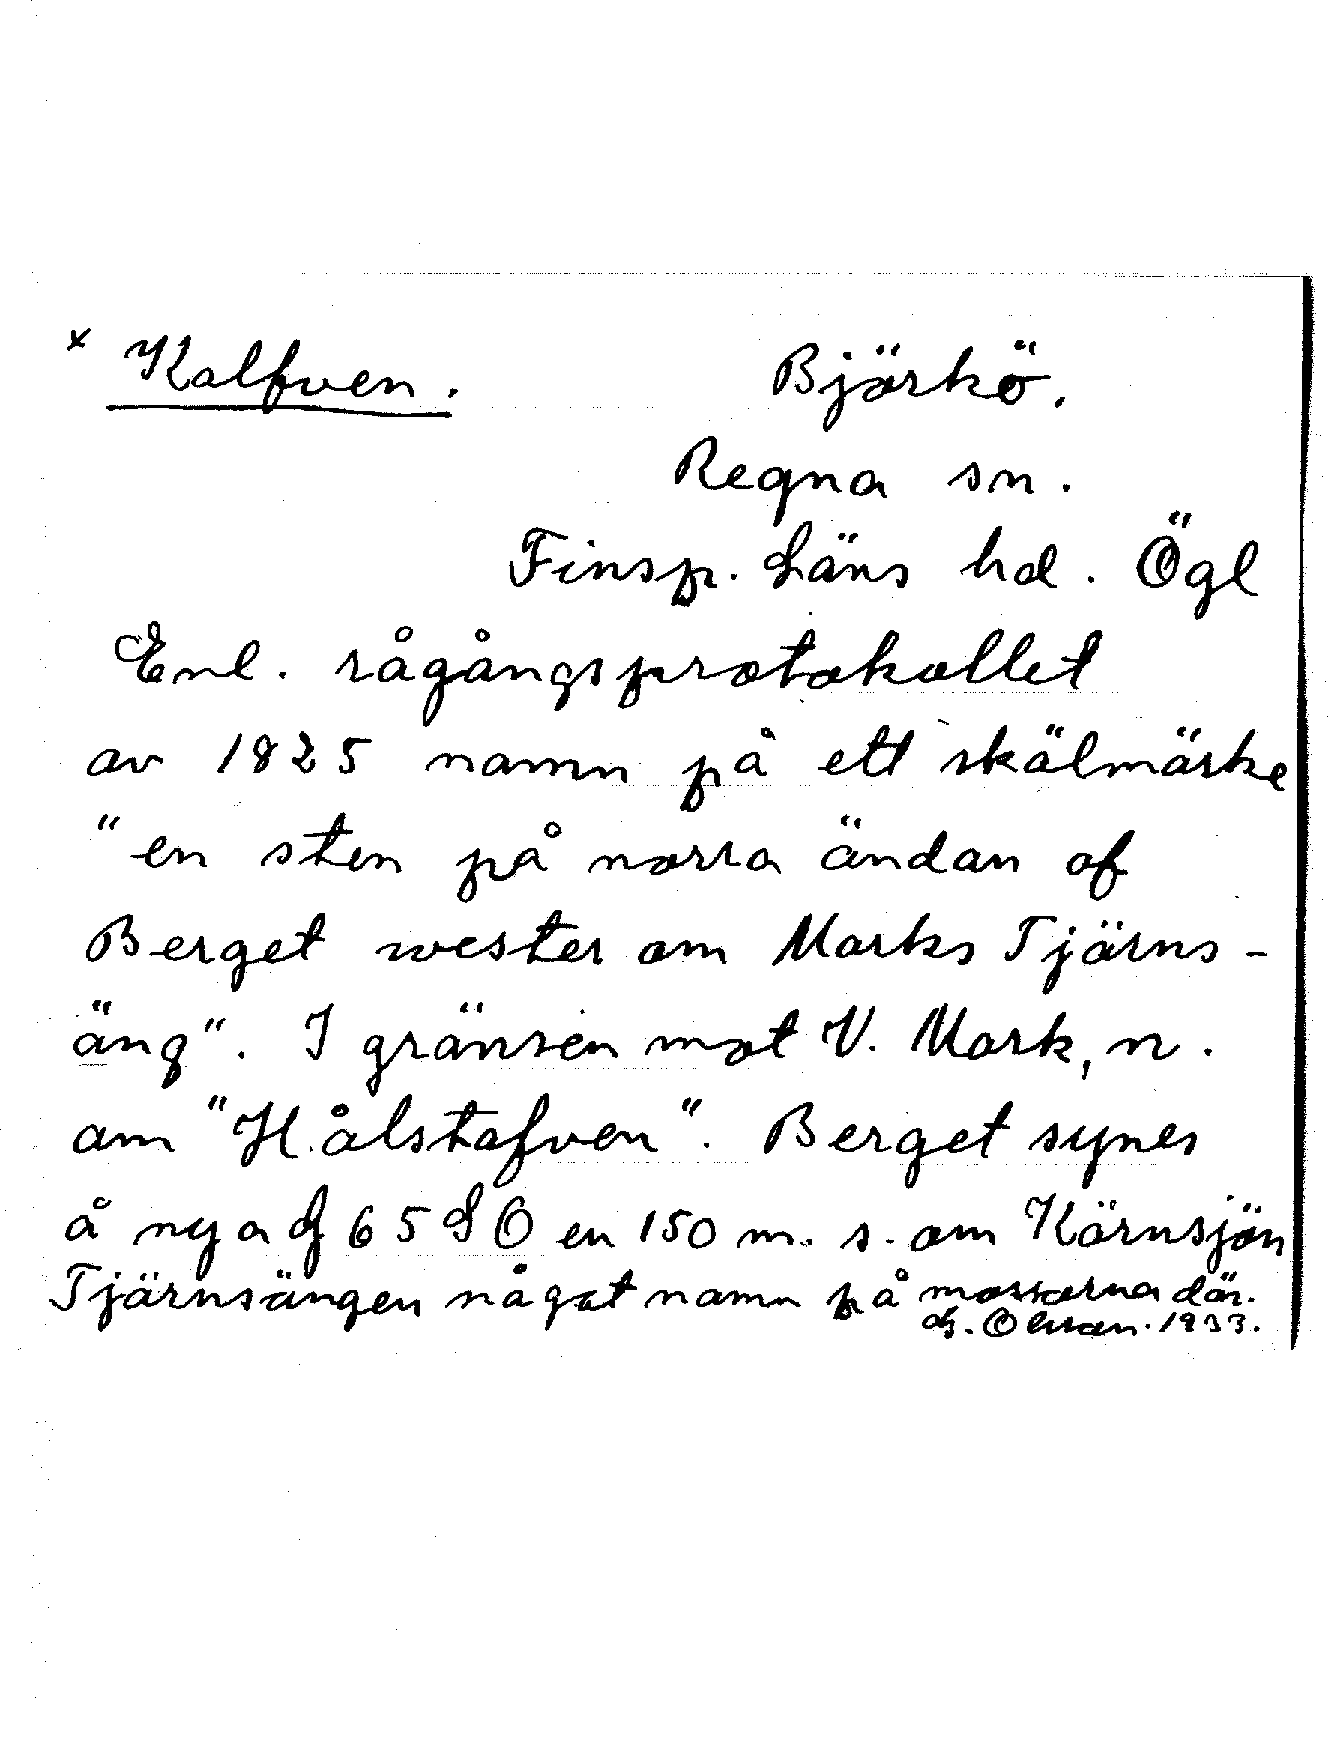 x Kalfven. Björkö.
Regna sn.
Finsp. Läns hd. Ögl
Enl. rågångsprotokollet
av 1825 namn på ett skälmärke
"en sten på norra ändan af
Berget wester om Marks Tjärns-
äng". I gränsen mot V. Mark, n.
om "Hålstafven". Berget synes
å nya G 65 SO en 150 m. s. om Kärnsjön
Tjärnsängen något namn på mossarna där.
G. Olsson. 1933.